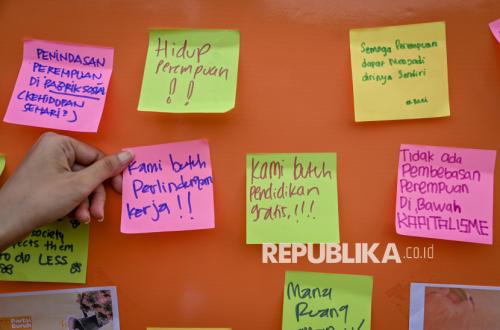 PENINDASAN
PEREMPUAN
DI PABRIK SOSIAL
(KEHIDUPAN
SEHARI²)
Hidup
perempuan
!!
Semoga Perempuan
dapat Menjadi
dirinya Sendiri
Kami butuh
Perlindungan
kerja!!
Kami butuh
pendidikan
gratis,!!!
Tidak ada
Pembebasan
Perempuan
Di Bawah
KAPITALISME
REPUBLIKA.co.id
society
them
to do LESS
Mana
Ruang
Partai
Buruh